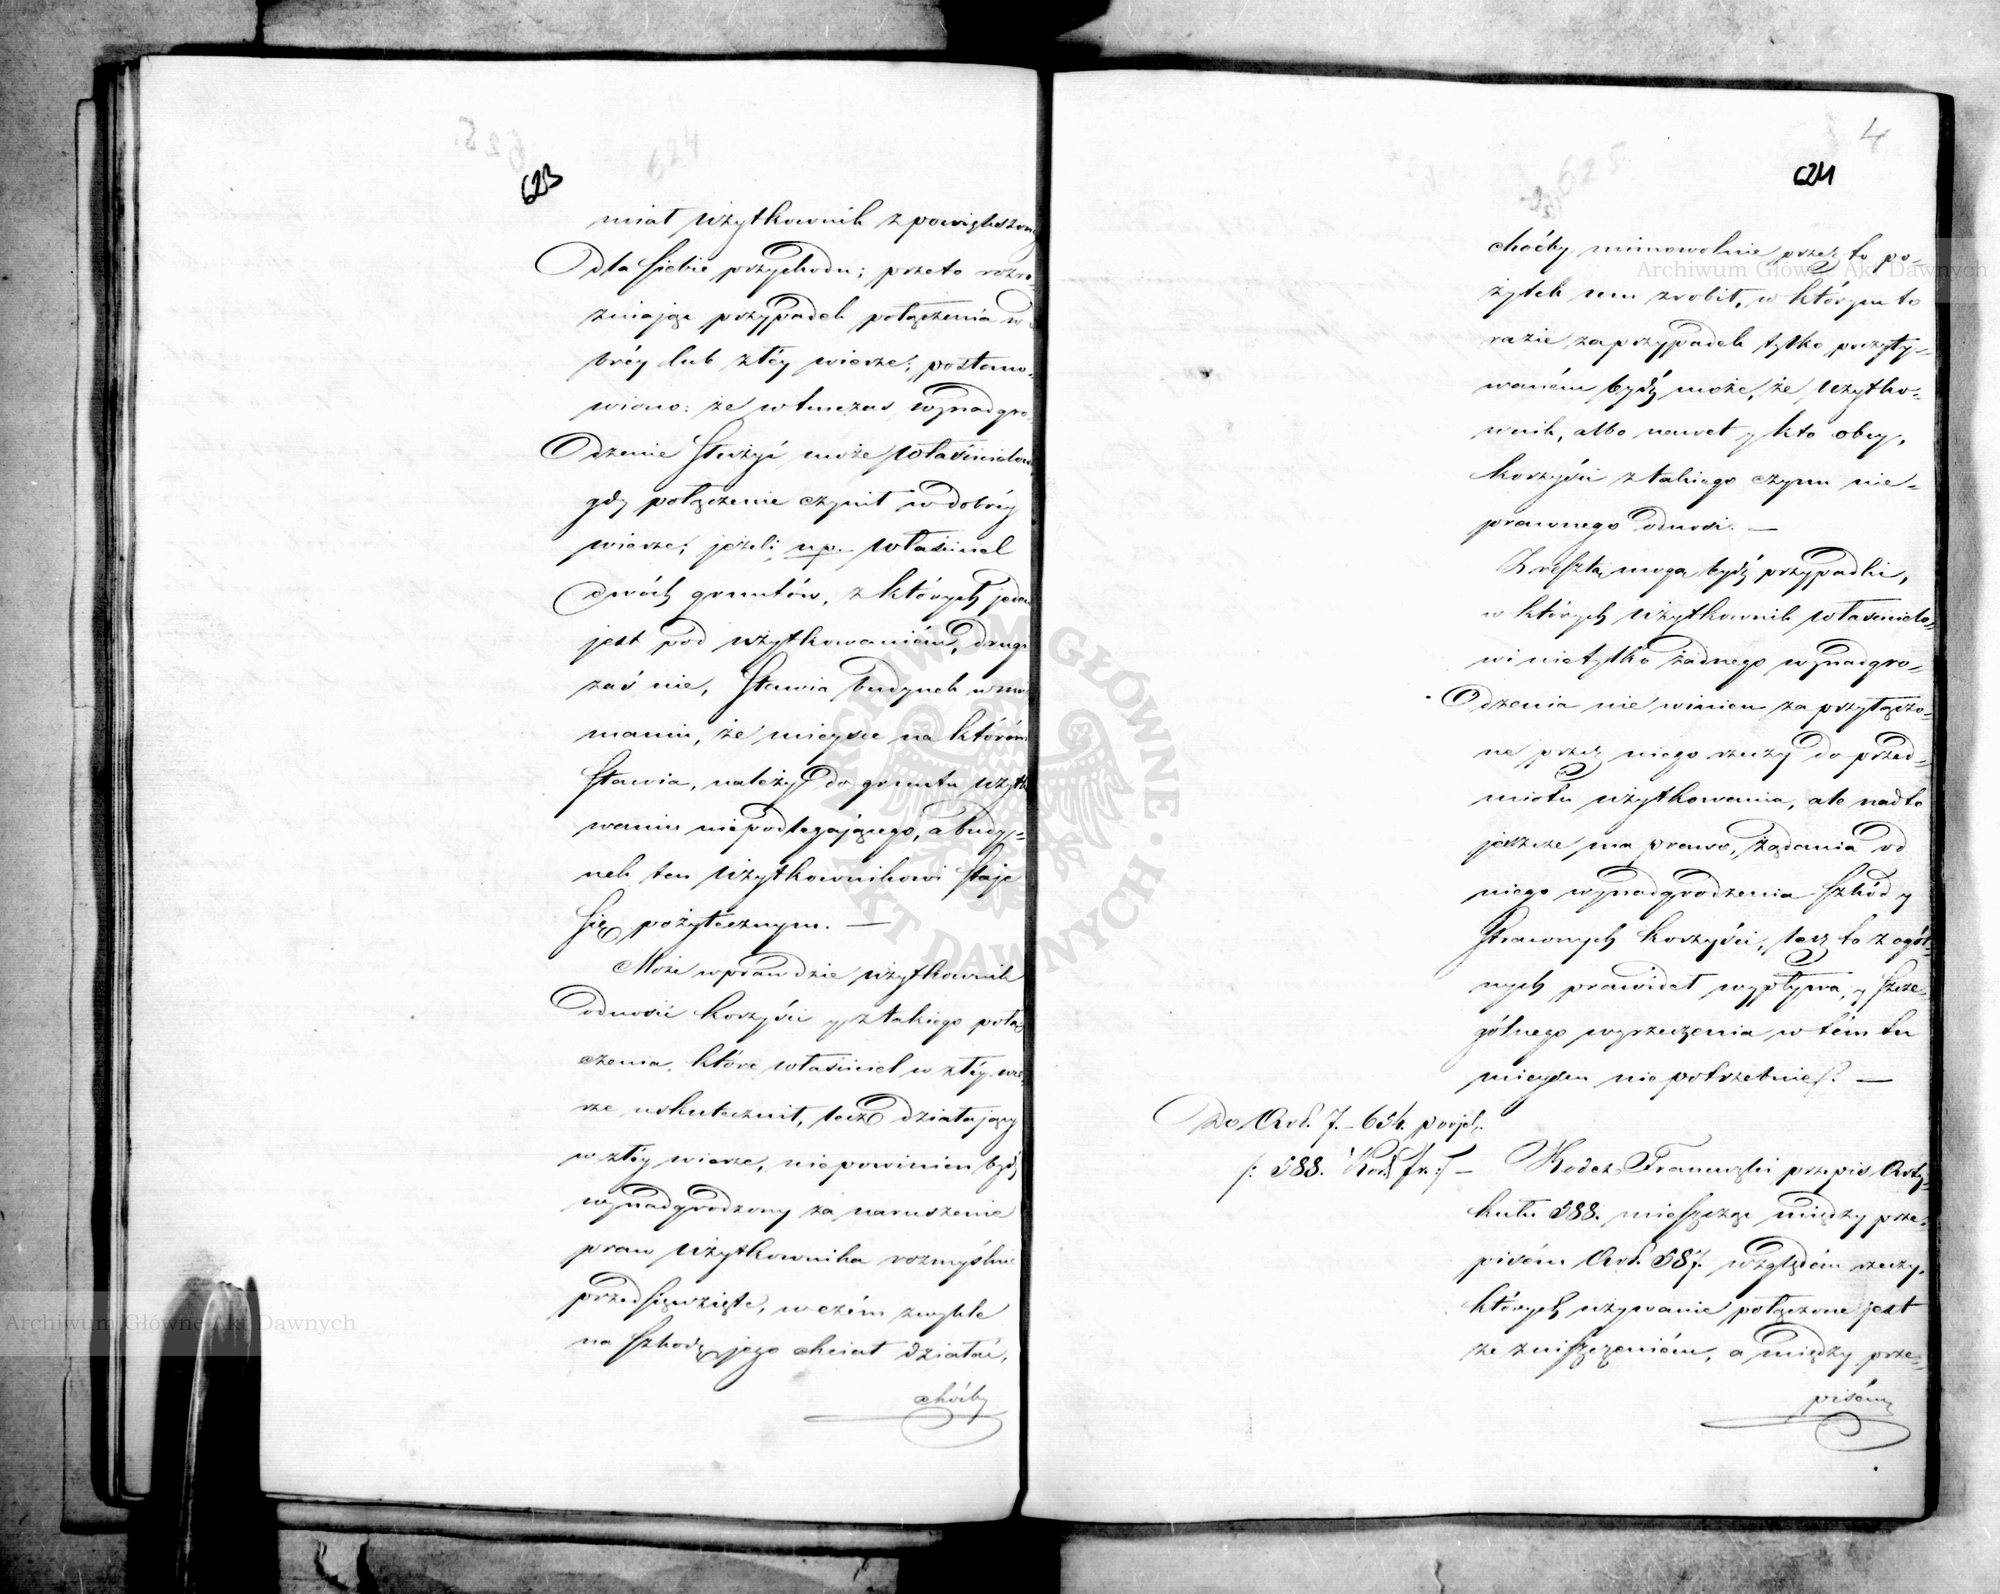 623
624
miał użytkownik z powiększon
dla siebie przychodu; przeto rozró
żniając przypadek połączenia w
bréy lub złéy wierze; postano-
wiono: że wtenczas wynadgro
dzenie służyć może właścicielow
gdy połączenie czynił w dobréy
wierze; jeżeli np. właściciel
dwóch gruntów, z których jeden
jest pod użytkowaniém, drugi
zaś nie, stawia budynek w mni
maniu, że mieysce na którém
stawia, należy do gruntu użytk
waniu niepodlegającego, a budy-
nek ten użytkownikowi staje
się pożytecznym. —
Może wprawdzie użytkownik
odnosić korzyści y z takiego połą
czenia, które właściciel w złéy wie
rze uskutecznił, lecz działający
w złéy wierze, niepowinien bydź
wynadgrodzony za naruszenie
praw użytkownika rozmyślnie
przedsięwzięte, w czém zwykle
na szkodę jego chciał działać,
chóćby
4
624
625
choćby mimowolnie przez to po-
żytek mu zrobił, w którym to
razie za przypadek tylko poczyty-
waném bydź może, że użytko-
wnik, albo nawet y kto obcy,
korzyści z takiego czynu nie-
prawnego odnosi. —
Zresztą mogą bydź przypadki,
w których użytkownik właścicielo-
wi nietylko żadnego wynadgro-
dzenia nie winien za przyłączo-
ne przez niego rzeczy do przed-
miotu użytkowania, ale nadto
jeszcze ma prawo, żądania od
niego wynadgrodzenia szkód y
straconych korzyści, lecz to z ogól-
nych prawideł wypływa, y szcze-
gólnego wyrzeczenia w tém tu
mieyscu nie potrzebuje. —
Do Art. 7. – 654. projek.
/: 588. Kod. fr. :/ — Kodex Francuzki przepis Arty-
kułu 588. mieszcząc między prze-
pisém Art. 587. względém rzeczy,
których używanie połączone jest
ze zniszczeniém, a między prze-
pisém
Archiwum Główne Akt Dawnych
Archiwum Główne Akt Dawnych
ARCHIWUM GŁÓWNE AKT DAWNYCH